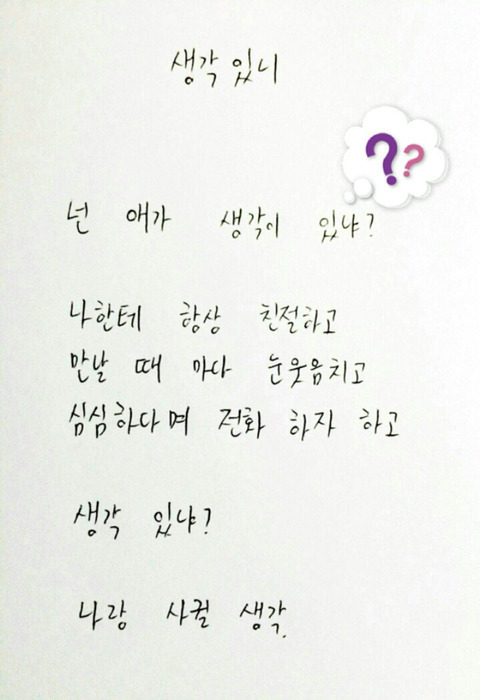 생각 있니
??
넌 애가 생각이 있냐?
나한테 항상 친절하고
만날 때 마다 눈웃음치고
심심하다며 전화 하자 하고
생각 있냐?
나랑 사귈 생각.